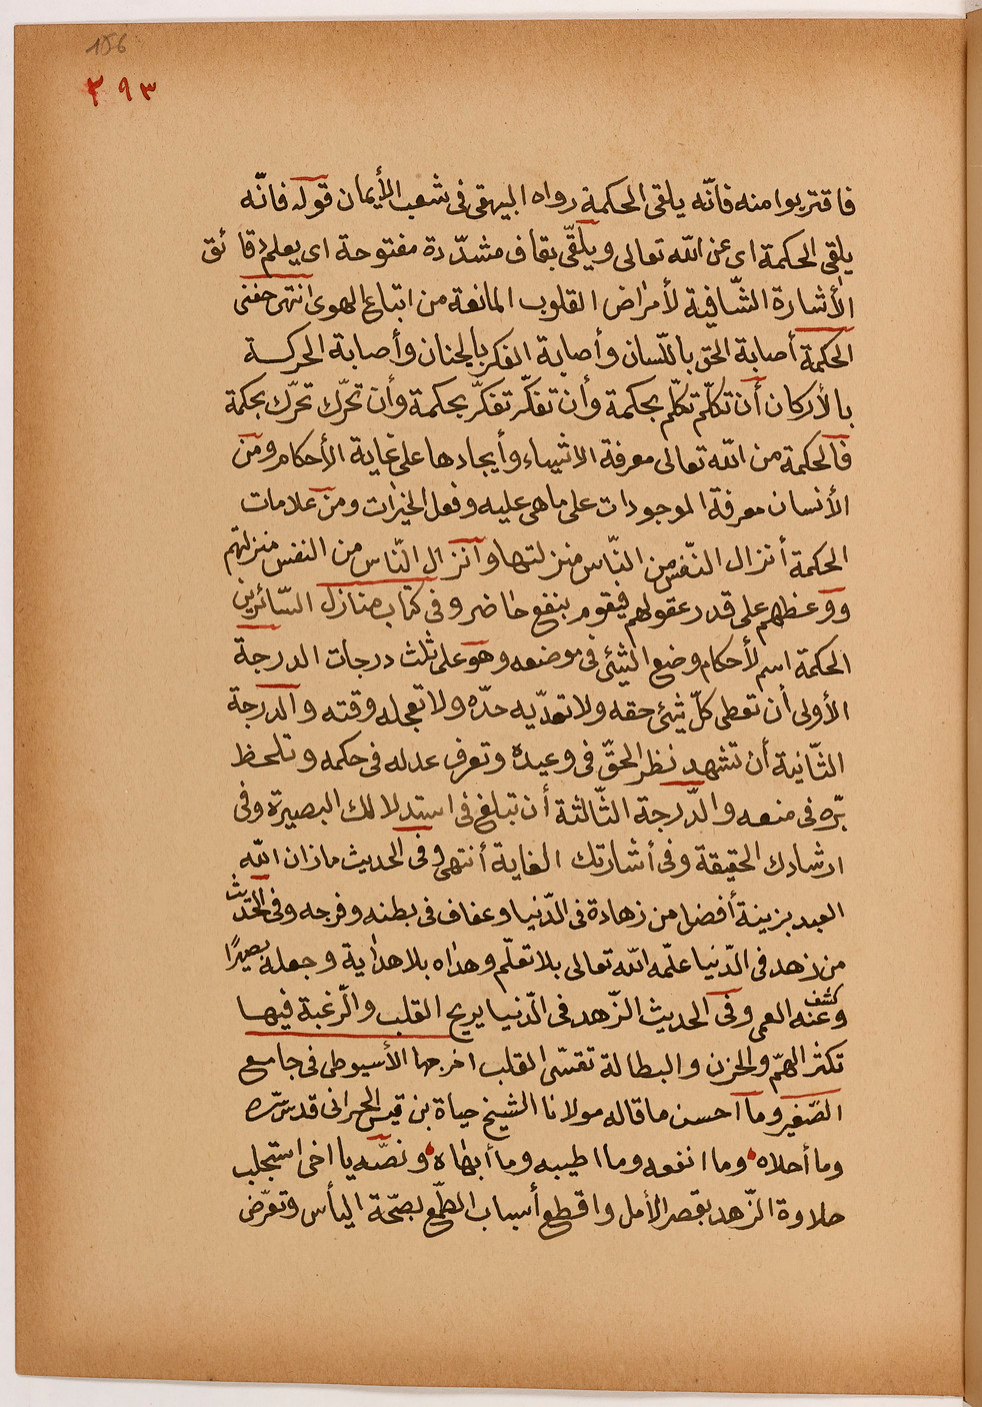 156
٣٩٣
فاقتربوا منه فانّه يلقى الحكمة رواه البيهقى فى شعب الأيمان قوله فانّه
يلقى الحكمة اى عن اللّه تعالى ويلقّى بقاف مشدّدة مفتوحة اى يعلم دقائق
الأشارة الشّافية لأمراض القلوب المانعة من اتباع الهوى انتهى حفنى
الحكمة أصابة الحق باللّسان وأصابة الفكر بالجنان وأصابة الحركـة
بالأركان أن تكلّم تكلّم بحكمة وأن تفكّر تفكّر بحكمة وأن تحرّك تحرّك بحكمة
فالحكمة من اللّه تعالى معرفة الاشياء وأيجادها على غاية الأحكام ومن
الأنسان معرفة الموجودات على ماهى عليه وفعل الخيرات ومن علامات
الحكمة أنزال النّفس من النّاس منزلتها وانزال النّاس من النفس منزلتهم
ووعظهم على قدر عقولهم فيقوم بنفع حاضر وفى كتاب منازل السّائرين
الحكمة اسم لأحكام وضع الشيئ فى موضعه وهو على ثلث درجات الدرجة
الأولى أن تعطى كلّ شيئ حقه ولا تعدّيه حدّه ولا تعجله وقته والدرجة
الثّانية أن تشهد نظر الحقّ فى وعيده وتعرف عدله فى حكمه وتلحظ
برّه فى منعه والدّرجة الثّالثة أن تبلغ فى استدلالك البصيرة وفى
ارشادك الحقيقة وفى أشارتك الغاية أنتهى وفى الحديث مازان اللّه
العبد بزينة أفضل من زهادة فى الدّنيا وعفاف فى بطنه وفرجه وفى الحديث
من زهد فى الدّنيا علّمه اللّه تعالى بلا تعلّم وهداه بلا هداية وجعله بصيرًا
وكشف عنه العمى وفى الحديث الزّهد فى الدّنيا يريح القلب والرّغبة فيها
تكثر الهمّ والحزن والبطالة تقسّى القلب اخرجها الأسيوطى فى جامع
الصّغير وما احسن ما قاله مولانا الشيخ حياة بن قيس الحرانى قدس سّره
وما أحلاه وما انفعه وما اطيبه وما أبهاه ونصّه يا اخى استجلب
حلاوة الزّهد بقصر الأمل واقطع أسباب الطّمع بصحّة اليأس وتعرّض